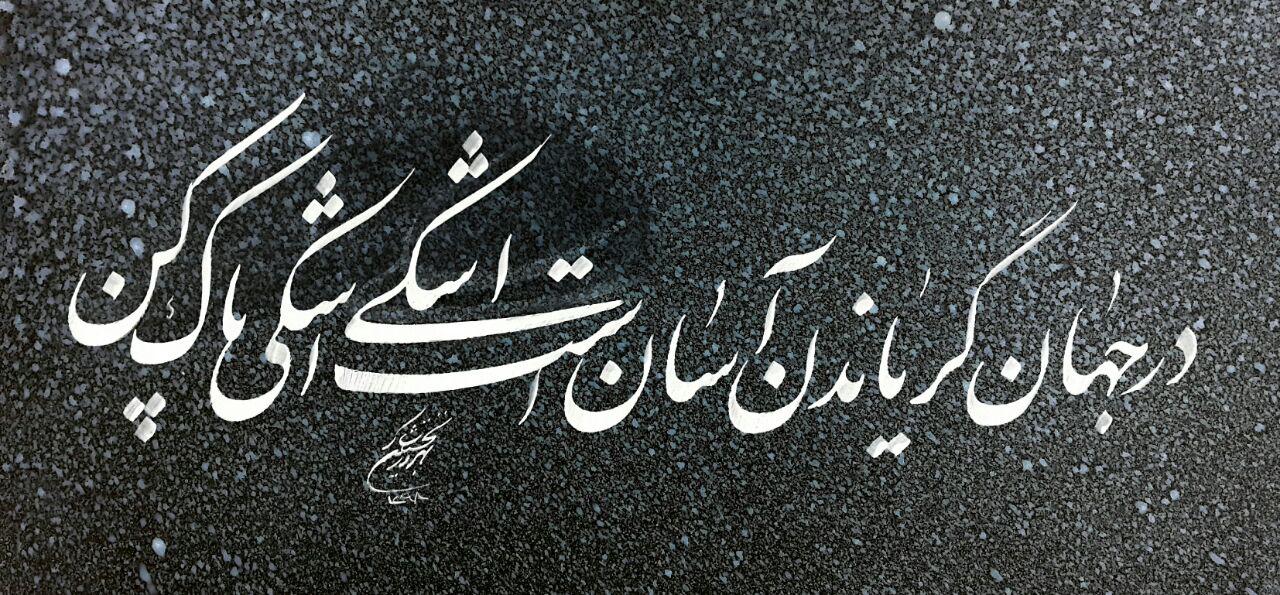 در جهان گریاندن آسان است اشکی اشکی پاک کن